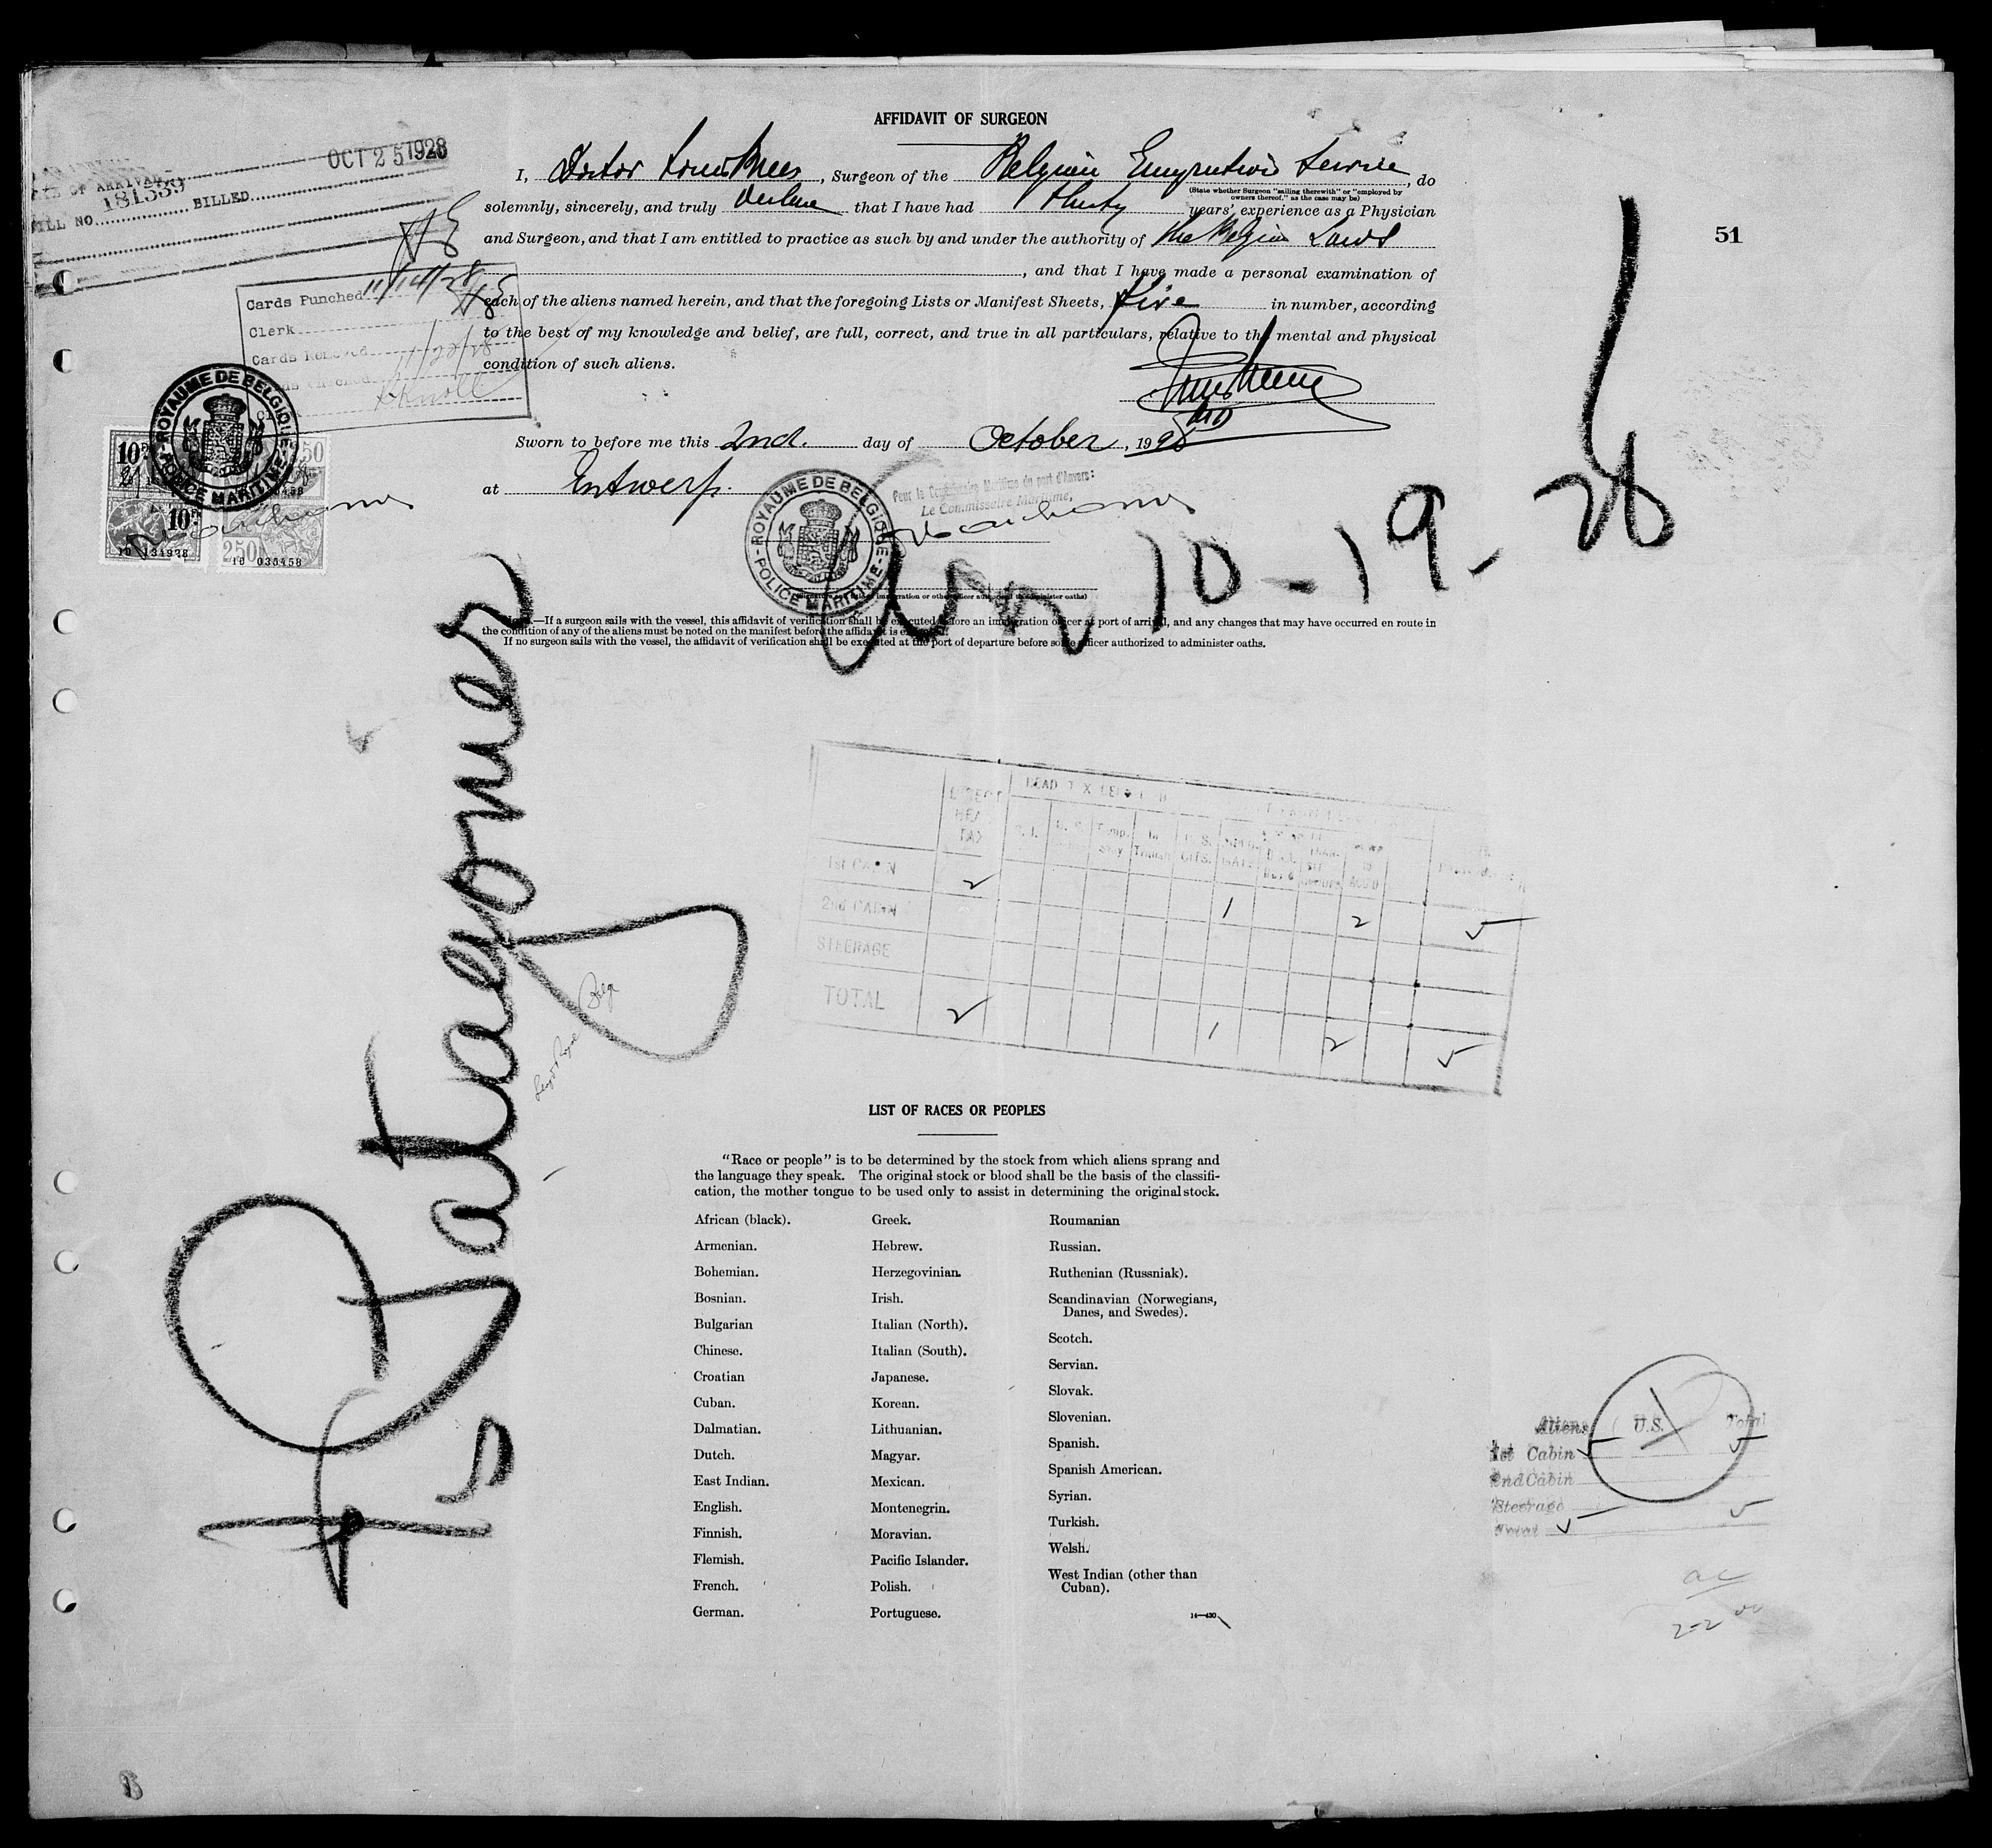 AFFIDAVIT OF SURGEON
OCT 25 1928
OF ARRIVAL
181339
BILL NO. BILLED
I, Doctor , Surgeon of the Belgian Emigration Service, do
(State whether Surgeon "sailing therewith" or "employed by
owners thereof," as the case may be)
solemnly, sincerely, and truly declare that I have had thirty years' experience as a Physician
and Surgeon, and that I am entitled to practice as such by and under the authority of the Belgian Laws
, and that I have made a personal examination of
each of the aliens named herein, and that the foregoing Lists or Manifest Sheets, five in number, according
to the best of my knowledge and belief, are full, correct, and true in all particulars, relative to the mental and physical
condition of such aliens.
51
Cards Punched 11/14/28
Clerk
Cards Removed
Sworn to before me this 2nd. day of October, 1928
at Antwerp.
ROYAUME DE BELGIQUE
POLICE MARITIME
10
10
10 134928
250
10 035458
ROYAUME DE BELGIQUE
POLICE MARITIME
Pour le Commissaire Maritime du port d'Anvers:
Le Commissaire Maritime,
Arr 10-19-28
.—If a surgeon sails with the vessel, this affidavit of verification shall be executed before an immigration officer at port of arrival, and any changes that may have occurred en route in
the condition of any of the aliens must be noted on the manifest before the affidavit is executed.
If no surgeon sails with the vessel, the affidavit of verification shall be executed at the port of departure before some officer authorized to administer oaths.
SS Patagonier
Lloyd Royal Belge
HEAD TAX
DIRECT
HEAD
TAX
Temp. Stay
In Transit
U.S. CITS.
1st CABIN 2
2nd CABIN 1 2 5
STEERAGE
TOTAL 2 1 2 5
LIST OF RACES OR PEOPLES
"Race or people" is to be determined by the stock from which aliens sprang and
the language they speak. The original stock or blood shall be the basis of the classifi-
cation, the mother tongue to be used only to assist in determining the original stock.
African (black).
Armenian.
Bohemian.
Bosnian.
Bulgarian
Chinese.
Croatian
Cuban.
Dalmatian.
Dutch.
East Indian.
English.
Finnish.
Flemish.
French.
German.
Greek.
Hebrew.
Herzegovinian.
Irish.
Italian (North).
Italian (South).
Japanese.
Korean.
Lithuanian.
Magyar.
Mexican.
Montenegrin.
Moravian.
Pacific Islander.
Polish.
Portuguese.
Roumanian
Russian.
Ruthenian (Russniak).
Scandinavian (Norwegians,
Danes, and Swedes).
Scotch.
Servian.
Slovak.
Slovenian.
Spanish.
Spanish American.
Syrian.
Turkish.
Welsh.
West Indian (other than
Cuban).
14—430
Aliens U.S. Total
1st Cabin 5 5
2nd Cabin
Steerage
5 5